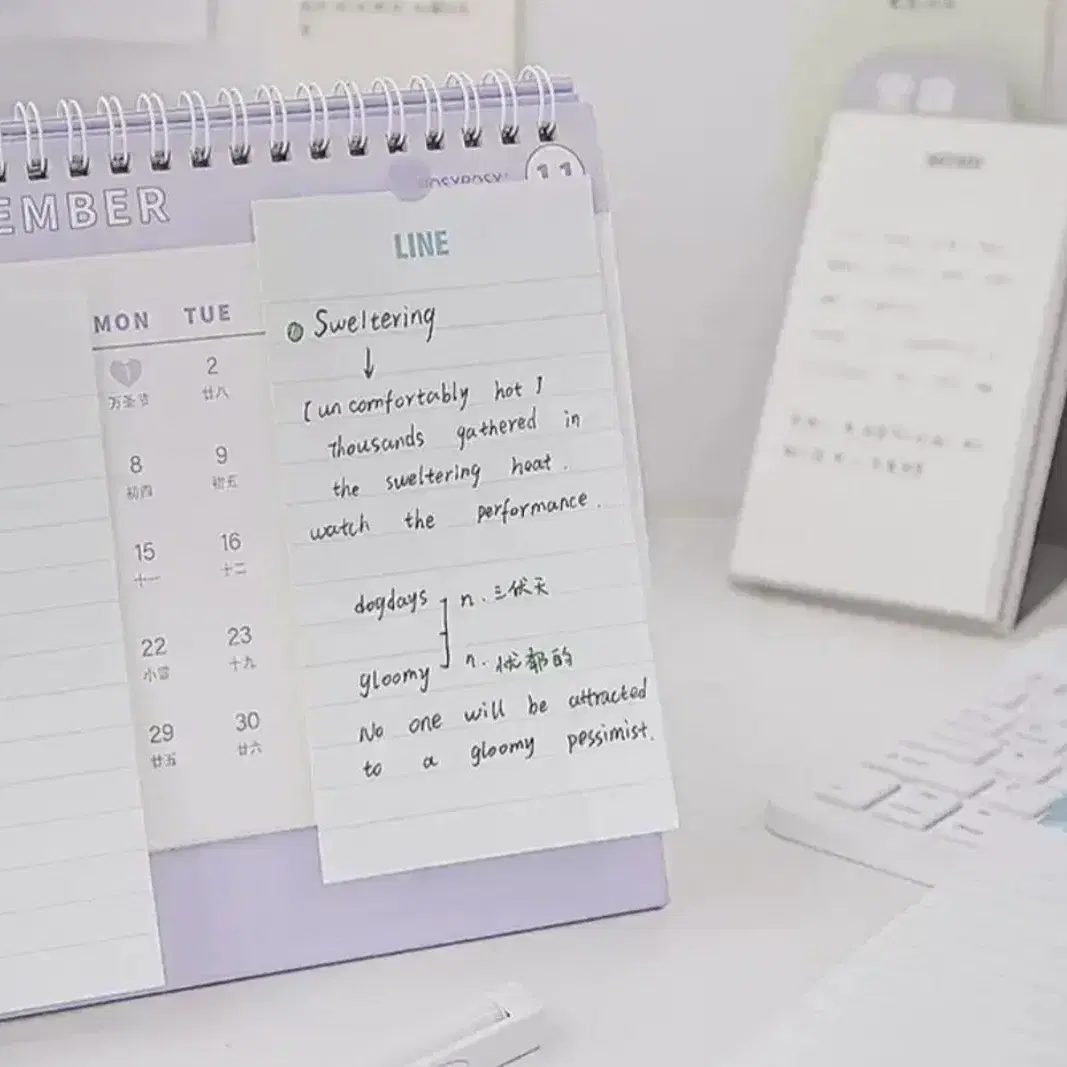 EMBER
11
MON TUE
1 2
万圣节 廿八
8 9
初四 初五
15 16
十一 十二
22 23
小雪 十九
29 30
廿五 廿六
LINE
Sweltering
↓
[uncomfortably hot]
Thousands gathered in
the sweltering heat.
watch the performance.
dogdays n. 三伏天
gloomy n. 忧郁的
No one will be attracted
to a gloomy pessimist.